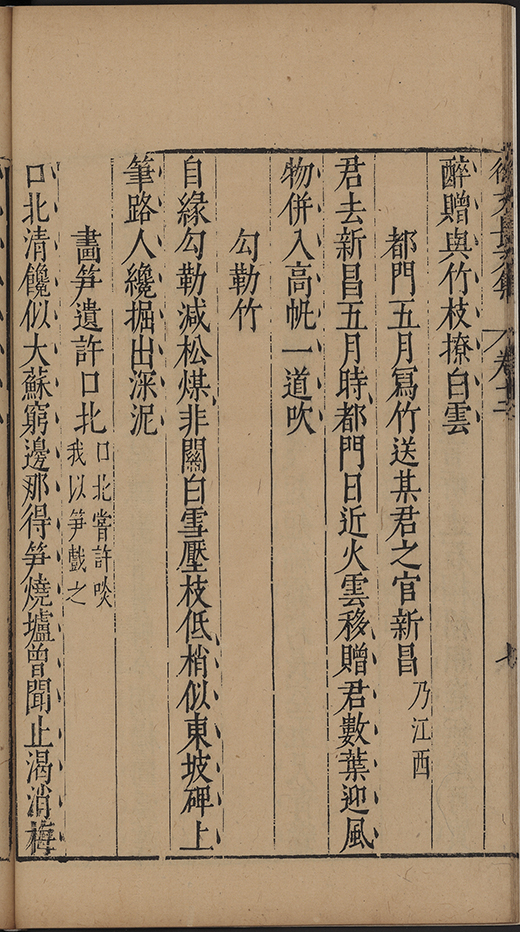 徐文長集　卷十二　七
醉贈與竹枝撩白雲
都門五月寫竹送某君之官新昌乃江西
君去新昌五月時都門日近火雲移贈君數葉迎風
物併入高帆一道吹
勾勒竹
自緣勾勒減松煤非關白雪壓枝低梢似東坡碑上
筆路人纔掘出深泥
畫笋遺許口北口北嘗許啖
我以笋戲之
口北清饞似大蘇窮邊那得笋燒壚曾聞止渴消梅